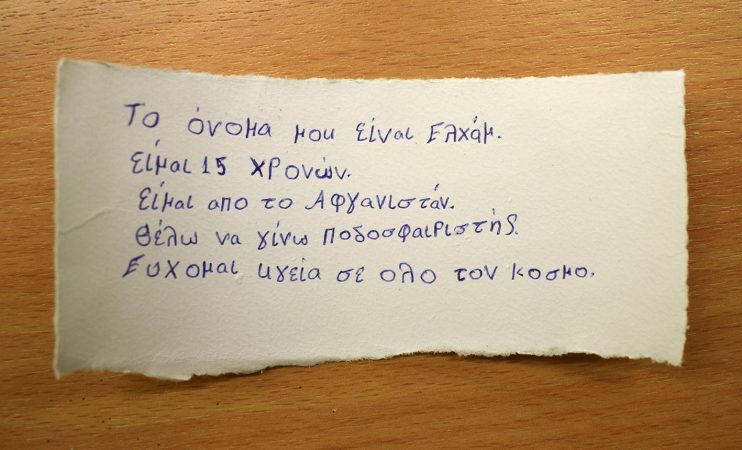 Το όνομα μου είναι Ελχάμ.
Είμαι 15 χρονών.
Είμαι απο το Αφγανιστάν.
Θέλω να γίνω ποδοσφαιριστής.
Ευχομαι υγεία σε ολο τον κοσμο.